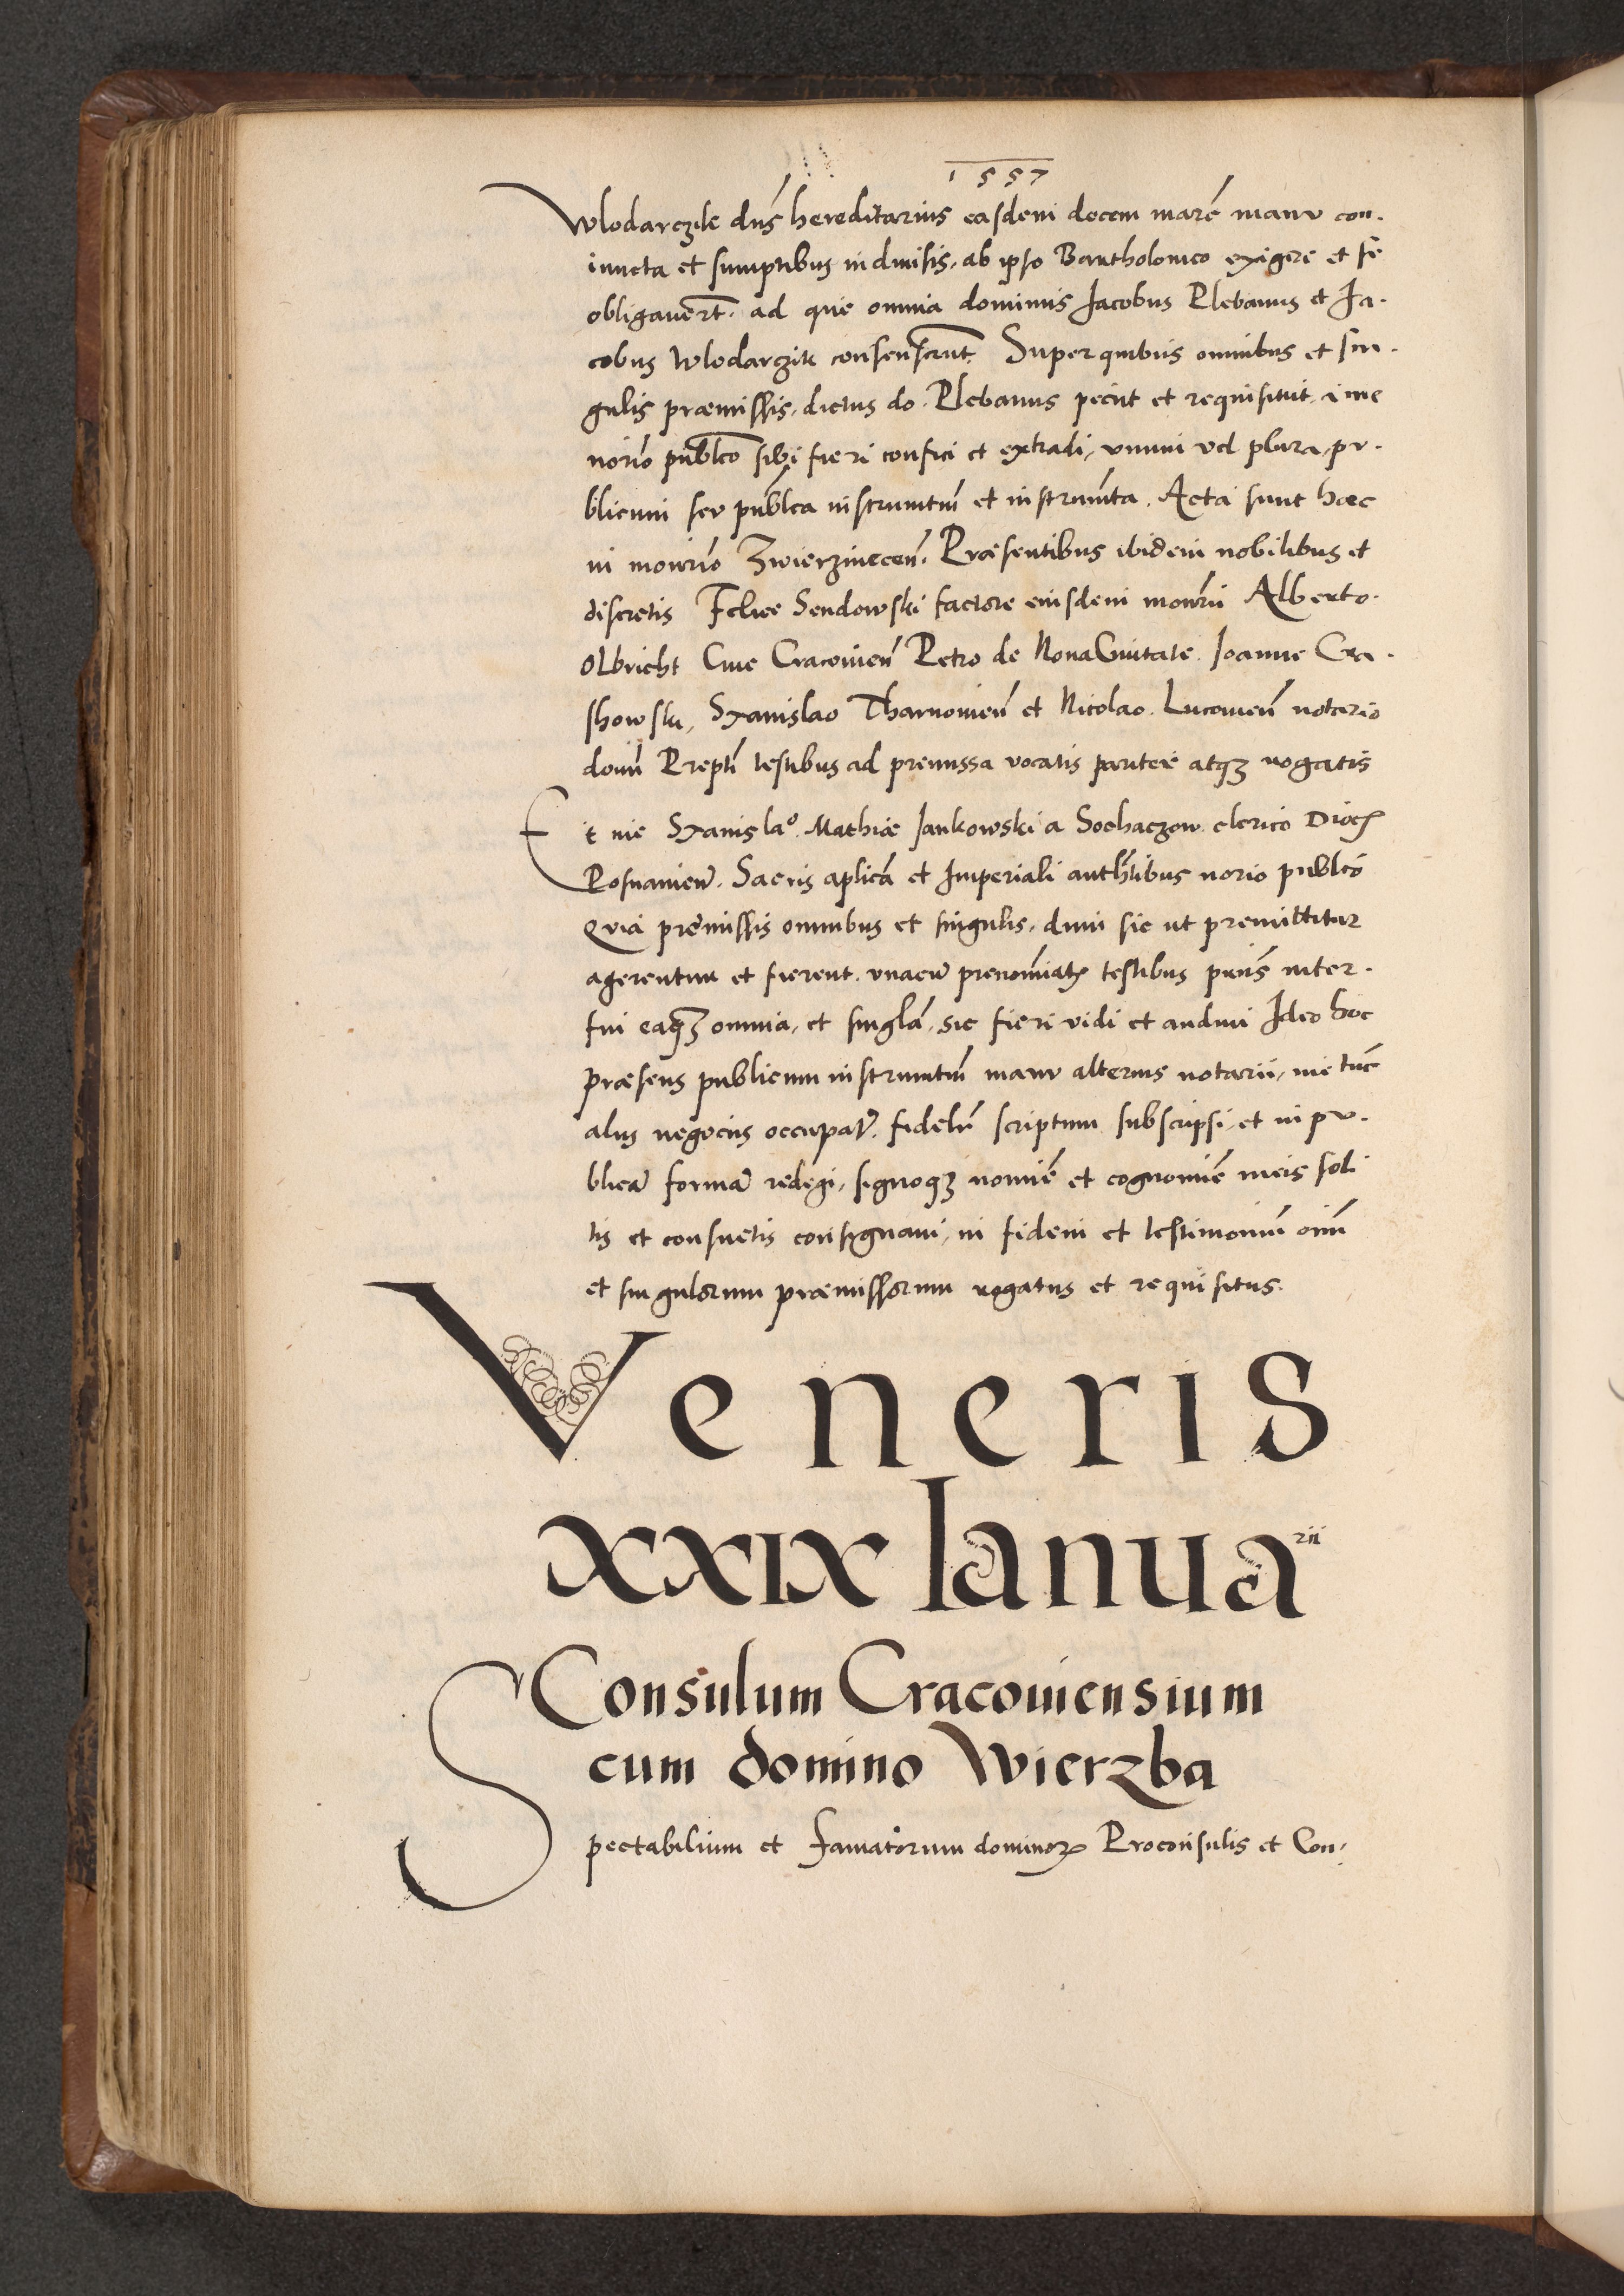 1557
Wlodarczik dns̄ hereditarius easdem decem marc̄ manu con-
iuncta et sumptibus indiuisis, ab ipso Bartholomeo exigere et se
obligauer̄t. ad que omnia dominus Jacobus Plebanus et Ja-
cobus Wlodarczik consenserunt. Super quibus omnibus et sin-
gulis præmissis, dictus do. Plebanus peciit et requisiuit, a me
norio pub̄lco sibi fieri confici et extradi, vnum vel plura, pu-
blicum seu pub̄lca instrumtm̄ et instrum̄ta. Acta sunt hæc
in mon̄rio Zwierzinecen̄. Præsentibus ibidem nobilibus et
discretis Felice Sendowski factore eiusdem mon̄rii Alberto.
Olbricht Ciue Cracouien̄ Petro de Noua Ciuitate. Joanne Cra-
showski, Stanislao Tharnouien̄ et Nicolao. Lucouien̄ notario
domn̄ Prep̄ti testibus ad premissa vocatis pariter atqȝ rogatis
Et me Stanislaᵒ. Mathiæ Jankowski a Sochaczow. clerico Dioc̄
Posnanien̄. Sacris ap̄lica et Imperiali auth̄tibus norio pub̄lco
Quia premissis omnibus et singulis, dum sic ut premittitur
agerentur et fierent. vnacū prenomiatꝭ testibus pn̄s inter-
fui eaqȝ omnia, et sinḡla, sic fieri vidi et audiui Ideo hoc
præsens publicum instrumtm̄ manu alterius notarii, me tūc
aliis negociis occupatꝰ. fidelr̄ scriptum subscripsi, et in pu-
blicā formā redegi, signoqȝ nomīe et cognomīe meis soli
tis et consuetis consignaui, in fidem et testimonium oim̄
et singulorum præmissorum rogatus et requisitus.
Veneris
XXIX Ianuarii
Consulum Cracouiensium
cum domino Wierzba
Spectabilium et Famatorum dominoꝝ Proconsulis et Con-